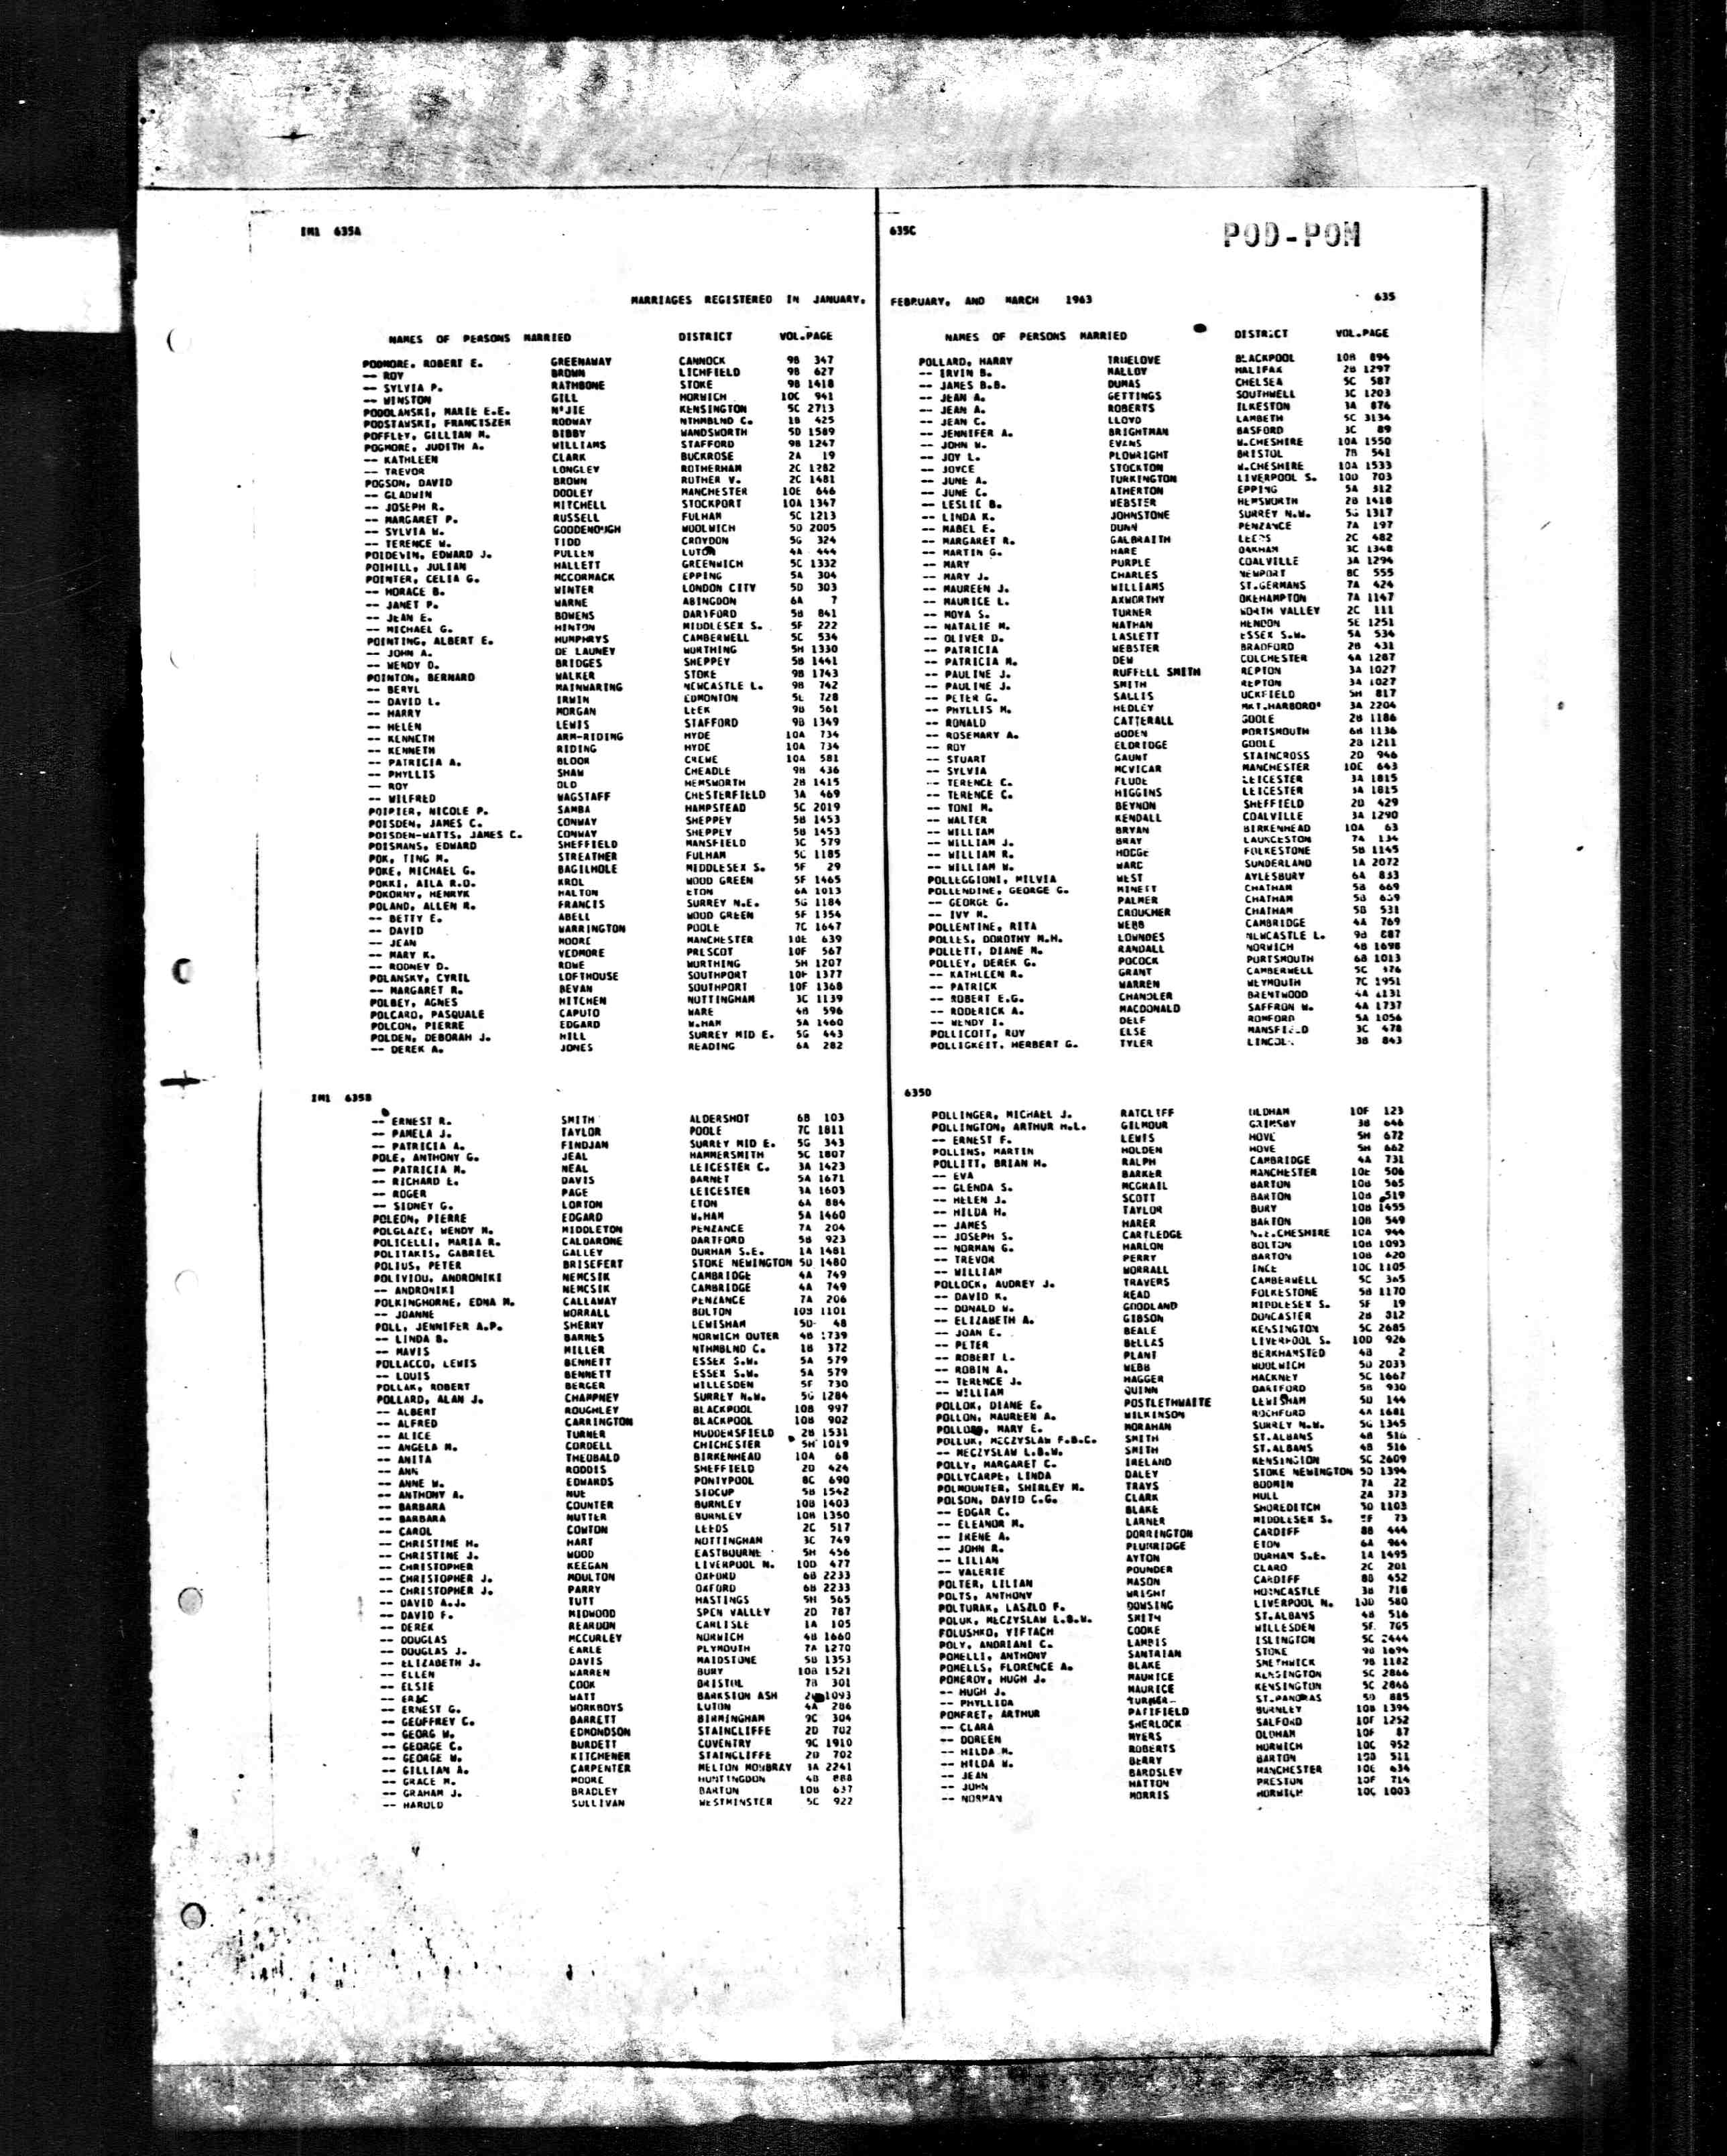 IM1 635A
635C
POD-POM
MARRIAGES REGISTERED IN JANUARY, FEBRUARY, AND MARCH 1963 635
NAMES OF PERSONS MARRIED DISTRICT VOL.PAGE
PODMORE, ROBERT E. GREENAWAY CANNOCK 9B 347
-- ROY BROWN LICHFIELD 9B 627
-- SYLVIA P. RATHBONE STOKE 9B 1418
-- WINSTON GILL HORWICH 10C 941
PODOLANSKI, MARIE E.E. N'JIE KENSINGTON 5C 2713
PODSTAWSKI, FRANCISZEK RODWAY NTHMBLND C. 1B 425
POFFLEY, GILLIAN M. BIBBY WANDSWORTH 5D 1589
POGMORE, JUDITH A. WILLIAMS STAFFORD 9B 1247
-- KATHLEEN CLARK BUCKROSE 2A 19
-- TREVOR LONGLEY ROTHERHAM 2C 1282
POGSON, DAVID BROWN ROTHER V. 2C 1481
-- GLADWIN DOOLEY MANCHESTER 10E 646
-- JOSEPH R. MITCHELL STOCKPORT 10A 1347
-- MARGARET P. RUSSELL FULHAM 5C 1213
-- SYLVIA W. GOODENOUGH WOOLWICH 5D 2005
-- TERENCE W. TIDD CROYDON 5G 324
POIDEVIN, EDWARD J. PULLEN LUTON 4A 444
POIHILL, JULIAN HALLETT GREENWICH 5C 1332
POINTER, CELIA G. MCCORMACK EPPING 5A 304
-- HORACE B. WINTER LONDON CITY 5D 303
-- JANET P. WARNE ABINGDON 6A 7
-- JEAN E. BOWENS DARTFORD 5B 841
-- MICHAEL G. HINTON MIDDLESEX S. 5F 222
POINTING, ALBERT E. HUMPHRYS CAMBERWELL 5C 534
-- JOHN A. DE LAUNEY WORTHING 5H 1330
-- WENDY D. BRIDGES SHEPPEY 5B 1441
POINTON, BERNARD WALKER STOKE 9B 1743
-- BERYL MAINWARING NEWCASTLE L. 9B 742
-- DAVID L. IRWIN EDMONTON 5E 728
-- HARRY MORGAN LEEK 9B 561
-- HELEN LEWIS STAFFORD 9B 1349
-- KENNETH ARM-RIDING HYDE 10A 734
-- KENNETH RIDING HYDE 10A 734
-- PATRICIA A. BLOOR CREWE 10A 581
-- PHYLLIS SHAW CHEADLE 9B 436
-- ROY OLD HEMSWORTH 2B 1415
-- WILFRED WAGSTAFF CHESTERFIELD 3A 469
POIPIER, NICOLE P. SAMBA HAMPSTEAD 5C 2019
POISDEN, JAMES C. CONWAY SHEPPEY 5B 1453
POISDEN-WATTS, JAMES C. CONWAY SHEPPEY 5B 1453
POISMANS, EDWARD SHEFFIELD MANSFIELD 3C 579
POK, TING M. STREATHER FULHAM 5C 1185
POKE, MICHAEL G. BAGILHOLE MIDDLESEX S. 5F 29
POKKI, AILA R.O. KROL WOOD GREEN 5F 1465
POKORNY, HENRYK HALTON ETON 6A 1013
POLAND, ALLEN R. FRANCIS SURREY N.E. 5G 1184
-- BETTY E. ABELL WOOD GREEN 5F 1354
-- DAVID WARRINGTON POOLE 7C 1647
-- JEAN MOORE MANCHESTER 10E 639
-- MARY K. VEDMORE PRESCOT 10F 567
-- RODNEY D. ROWE WORTHING 5H 1207
POLANSKY, CYRIL LOFTHOUSE SOUTHPORT 10F 1377
-- MARGARET R. BEVAN SOUTHPORT 10F 1368
POLBEY, AGNES HITCHEN NOTTINGHAM 3C 1139
POLCARO, PASQUALE CAPUTO WARE 4B 596
POLCON, PIERRE EDGARD W.HAM 5A 1460
POLDEN, DEBORAH J. HILL SURREY MID E. 5G 443
-- DEREK A. JONES READING 6A 282
IM1 635B
-- ERNEST R. SMITH ALDERSHOT 6B 103
-- PAMELA J. TAYLOR POOLE 7C 1811
-- PATRICIA A. FINDJAN SURREY MID E. 5G 343
POLE, ANTHONY G. JEAL HAMMERSMITH 5C 1807
-- PATRICIA M. NEAL LEICESTER C. 3A 1423
-- RICHARD E. DAVIS BARNET 5A 1671
-- ROGER PAGE LEICESTER 3A 1603
-- SIDNEY G. LORTON ETON 6A 884
POLEON, PIERRE EDGARD W.HAM 5A 1460
POLGLAZE, WENDY M. MIDDLETON PENZANCE 7A 204
POLICELLI, MARIA R. CALDARONE DARTFORD 5B 923
POLITAKIS, GABRIEL GALLEY DURHAM S.E. 1A 1481
POLIUS, PETER BRISEFERT STOKE NEWINGTON 5D 1480
POLIVIOU, ANDRONIKI NEMCSIK CAMBRIDGE 4A 749
-- ANDRONIKI NEMCSIK CAMBRIDGE 4A 749
POLKINGHORNE, EDNA M. CALLAWAY PENZANCE 7A 206
-- JOANNE WORRALL BOLTON 10B 1101
POLL, JENNIFER A.P. SHERRY LEWISHAM 5D 48
-- LINDA B. BARNES NORWICH OUTER 4B 1739
-- MAVIS MILLER NTHMBLND C. 1B 372
POLLACCO, LEWIS BENNETT ESSEX S.W. 5A 579
-- LOUIS BENNETT ESSEX S.W. 5A 579
POLLAK, ROBERT BERGER WILLESDEN 5F 730
POLLARD, ALAN J. CHAMPNEY SURREY N.W. 5G 1284
-- ALBERT ROUGHLEY BLACKPOOL 10B 997
-- ALFRED CARRINGTON BLACKPOOL 10B 902
-- ALICE TURNER HUDDERSFIELD 2B 1531
-- ANGELA M. CORDELL CHICHESTER 5H 1019
-- ANITA THEOBALD BIRKENHEAD 10A 68
-- ANN RODDIS SHEFFIELD 2D 424
-- ANNE W. EDWARDS PONTYPOOL 8C 690
-- ANTHONY A. NUE SIDCUP 5B 1542
-- BARBARA COUNTER BURNLEY 10B 1403
-- BARBARA NUTTER BURNLEY 10B 1350
-- CAROL COWTON LEEDS 2C 517
-- CHRISTINE M. HART NOTTINGHAM 3C 749
-- CHRISTINE J. WOOD EASTBOURNE 5H 456
-- CHRISTOPHER KEEGAN LIVERPOOL N. 10D 477
-- CHRISTOPHER J. MOULTON OXFORD 6B 2233
-- CHRISTOPHER J. PARRY OXFORD 6B 2233
-- DAVID A.J. TUTT HASTINGS 5H 565
-- DAVID F. MIDWOOD SPEN VALLEY 2D 787
-- DEREK REARDON CARLISLE 1A 105
-- DOUGLAS MCCURLEY NORWICH 4B 1660
-- DOUGLAS J. EARLE PLYMOUTH 7A 1270
-- ELIZABETH J. DAVIS MAIDSTONE 5B 1353
-- ELLEN WARREN BURY 10B 1521
-- ELSIE COOK BRISTOL 7B 301
-- ERIC WATT BARKSTON ASH 1093
-- ERNEST G. WORKBOYS LUTON 4A 286
-- GEOFFREY C. BARRETT BIRMINGHAM 9C 304
-- GEORG W. EDMONDSON STAINCLIFFE 2D 702
-- GEORGE C. BURDETT COVENTRY 9C 1910
-- GEORGE W. KITCHENER STAINCLIFFE 2D 702
-- GILLIAN A. CARPENTER MELTON MOWBRAY 3A 2241
-- GRACE M. MOORE HUNTINGDON 4B 888
-- GRAHAM J. BRADLEY BARTON 10B 637
-- HAROLD SULLIVAN WESTMINSTER 5C 922
NAMES OF PERSONS MARRIED DISTRICT VOL.PAGE
POLLARD, HARRY TRUELOVE BLACKPOOL 10B 894
-- IRVIN B. MALLOY HALIFAX 2B 1297
-- JAMES B.B. DUMAS CHELSEA 5C 587
-- JEAN A. GETTINGS SOUTHWELL 3C 1203
-- JEAN A. ROBERTS ILKESTON 3A 876
-- JEAN C. LLOYD LAMBETH 5C 3134
-- JENNIFER A. BRIGHTMAN BASFORD 3C 89
-- JOHN W. EVANS W.CHESHIRE 10A 1550
-- JOY L. PLOWRIGHT BRISTOL 7B 541
-- JOYCE STOCKTON W.CHESHIRE 10A 1533
-- JUNE A. TURKINGTON LIVERPOOL S. 10D 703
-- JUNE C. ATHERTON EPPING 5A 312
-- LESLIE B. WEBSTER HEMSWORTH 2B 1418
-- LINDA K. JOHNSTONE SURREY N.W. 5G 1317
-- MABEL E. DUNN PENZANCE 7A 197
-- MARGARET R. GALBRAITH LEEDS 2C 482
-- MARTIN G. HARE OAKHAM 3C 1348
-- MARY PURPLE COALVILLE 3A 1294
-- MARY J. CHARLES NEWPORT 8C 555
-- MAUREEN J. WILLIAMS ST.GERMANS 7A 424
-- MAURICE L. AXWORTHY OKEHAMPTON 7A 1147
-- MOYA S. TURNER NORTH VALLEY 2C 111
-- NATALIE M. NATHAN HENDON 5E 1251
-- OLIVER D. LASLETT ESSEX S.W. 5A 534
-- PATRICIA WEBSTER BRADFORD 2B 431
-- PATRICIA M. DEW COLCHESTER 4A 1287
-- PAULINE J. RUFFELL SMITH REPTON 3A 1027
-- PAULINE J. SMITH REPTON 3A 1027
-- PETER G. SALLIS UCKFIELD 5H 817
-- PHYLLIS M. HEDLEY MKT.HARBORO' 3A 2204
-- RONALD CATTERALL GOOLE 2B 1186
-- ROSEMARY A. BODEN PORTSMOUTH 6B 1136
-- ROY ELDRIDGE GOOLE 2B 1211
-- STUART GAUNT STAINCROSS 2D 946
-- SYLVIA MCVICAR MANCHESTER 10E 643
-- TERENCE C. FLUDE LEICESTER 3A 1815
-- TERENCE C. HIGGINS LEICESTER 3A 1815
-- TONI M. BEYNON SHEFFIELD 2D 429
-- WALTER KENDALL COALVILLE 3A 1290
-- WILLIAM BRYAN BIRKENHEAD 10A 63
-- WILLIAM J. BRAY LAUNCESTON 7A 134
-- WILLIAM R. HODGE FOLKESTONE 5B 1145
-- WILLIAM W. WARC SUNDERLAND 1A 2072
POLLEGGIONI, MILVIA WEST AYLESBURY 6A 833
POLLENDINE, GEORGE G. MINETT CHATHAM 5B 669
-- GEORGE G. PALMER CHATHAM 5B
-- IVY M. CROUCHER CHATHAM 5B 531
POLLENTINE, RITA WEBB CAMBRIDGE 4A 769
POLLES, DOROTHY M.H. LOWNDES NEWCASTLE L. 9B 887
POLLETT, DIANE M. RANDALL NORWICH 4B 1698
POLLEY, DEREK G. POCOCK PORTSMOUTH 6B 1013
-- KATHLEEN R. GRANT CAMBERWELL 5C
-- PATRICK WARREN WEYMOUTH 7C 1951
-- ROBERT E.G. CHANDLER BRENTWOOD 4A
-- RODERICK A. MACDONALD SAFFRON W. 4A 1737
-- WENDY I. DELF ROMFORD 5A 1056
POLLICOTT, ROY ELSE MANSFIELD 3C 478
POLLIGKEIT, HERBERT G. TYLER LINCOLN 3B 843
635D
POLLINGER, MICHAEL J. RATCLIFF OLDHAM 10F 123
POLLINGTON, ARTHUR H.L. GILMOUR GRIMSBY 3B 646
-- ERNEST F. LEWIS HOVE 5H 672
POLLINS, MARTIN HOLDEN HOVE 5H 662
POLLITT, BRIAN H. RALPH CAMBRIDGE 4A 731
-- EVA BARKER MANCHESTER 10E 506
-- GLENDA S. MCGRAIL BARTON 10B 565
-- HELEN J. SCOTT BARTON 10B 519
-- HILDA H. TAYLOR BURY 10B 1455
-- JAMES HARER BARTON 10B 549
-- JOSEPH S. CARTLEDGE N.E.CHESHIRE 10A 944
-- NORMAN G. HARLON BOLTON 10B 1093
-- TREVOR PERRY BARTON 10B 620
-- WILLIAM WORRALL INCE 10C 1105
POLLOCK, AUDREY J. TRAVERS CAMBERWELL 5C 365
-- DAVID K. READ FOLKESTONE 5B 1170
-- DONALD W. GOODLAND MIDDLESEX S. 5F 19
-- ELIZABETH A. GIBSON DONCASTER 2B 312
-- JOAN E. BEALE KENSINGTON 5C 2685
-- PETER BELLAS LIVERPOOL S. 10D 926
-- ROBERT L. PLANT BERKHAMSTED 4B 2
-- ROBIN A. WEBB WOOLWICH 5D 2033
-- TERENCE J. HAGGER HACKNEY 5C 1667
-- WILLIAM QUINN DARTFORD 5B 930
POLLOK, DIANE E. POSTLETHWAITE LEWISHAM 5D 144
POLLON, MAUREEN A. WILKINSON ROCHFORD 4A 1681
MARY E. MORAHAN SURREY N.W. 5G 1345
POLLUK, MECZYSLAW F.B.C. SMITH ST.ALBANS 4B 516
-- MECZYSLAW L.B.W. SMITH ST.ALBANS 4B 516
POLLY, MARGARET C. IRELAND KENSINGTON 5C 2609
POLLYCARPE, LINDA DALEY STOKE NEWINGTON 5D 1394
POLMOUNTER, SHIRLEY M. TRAYS BODMIN 7A 22
POLSON, DAVID C.G. CLARK HULL 2A 373
-- EDGAR C. BLAKE SHOREDITCH 5D 1103
-- ELEANOR M. LARNER MIDDLESEX S. 5F 73
-- IRENE A. DORRINGTON CARDIFF 8B 444
-- JOHN R. PLUMRIDGE ETON 6A 964
-- LILIAN AYTON DURHAM S.E. 1A 1495
-- VALERIE POUNDER CLARO 2C 201
POLTER, LILIAN MASON CARDIFF 8B 452
POLTS, ANTHONY WRIGHT HORNCASTLE 3B 718
POLTURAK, LASZLO F. DOWSING LIVERPOOL N. 10D 580
POLUK, MECZYSLAW L.B.W. SMITH ST.ALBANS 4B 516
POLUSHKO, YIFTACH COOKE WILLESDEN 5F 765
POLY, ANDRIANI C. LAMBIS ISLINGTON 5C 2444
POMELLI, ANTHONY SANTAIAN STOKE 9B 1694
POMELLS, FLORENCE A. BLAKE SMETHWICK 9B 1182
POMEROY, HUGH J. MAURICE KENSINGTON 5C 2846
-- HUGH J. MAURICE KENSINGTON 5C 2846
-- PHYLLIDA TURNER ST.PANCRAS 5D 885
POMFRET, ARTHUR PATIFIELD BURNLEY 10B 1394
-- CLARA SHERLOCK SALFORD 10F 1252
-- DOREEN MYERS OLDHAM 10F 87
-- HILDA M. ROBERTS HORWICH 10C 952
-- HILDA W. BERRY BARTON 10B 511
-- JEAN BARDSLEY MANCHESTER 10E 634
-- JOHN HATTON PRESTON 10F 714
-- NORMAN MORRIS HORWICH 10C 1003